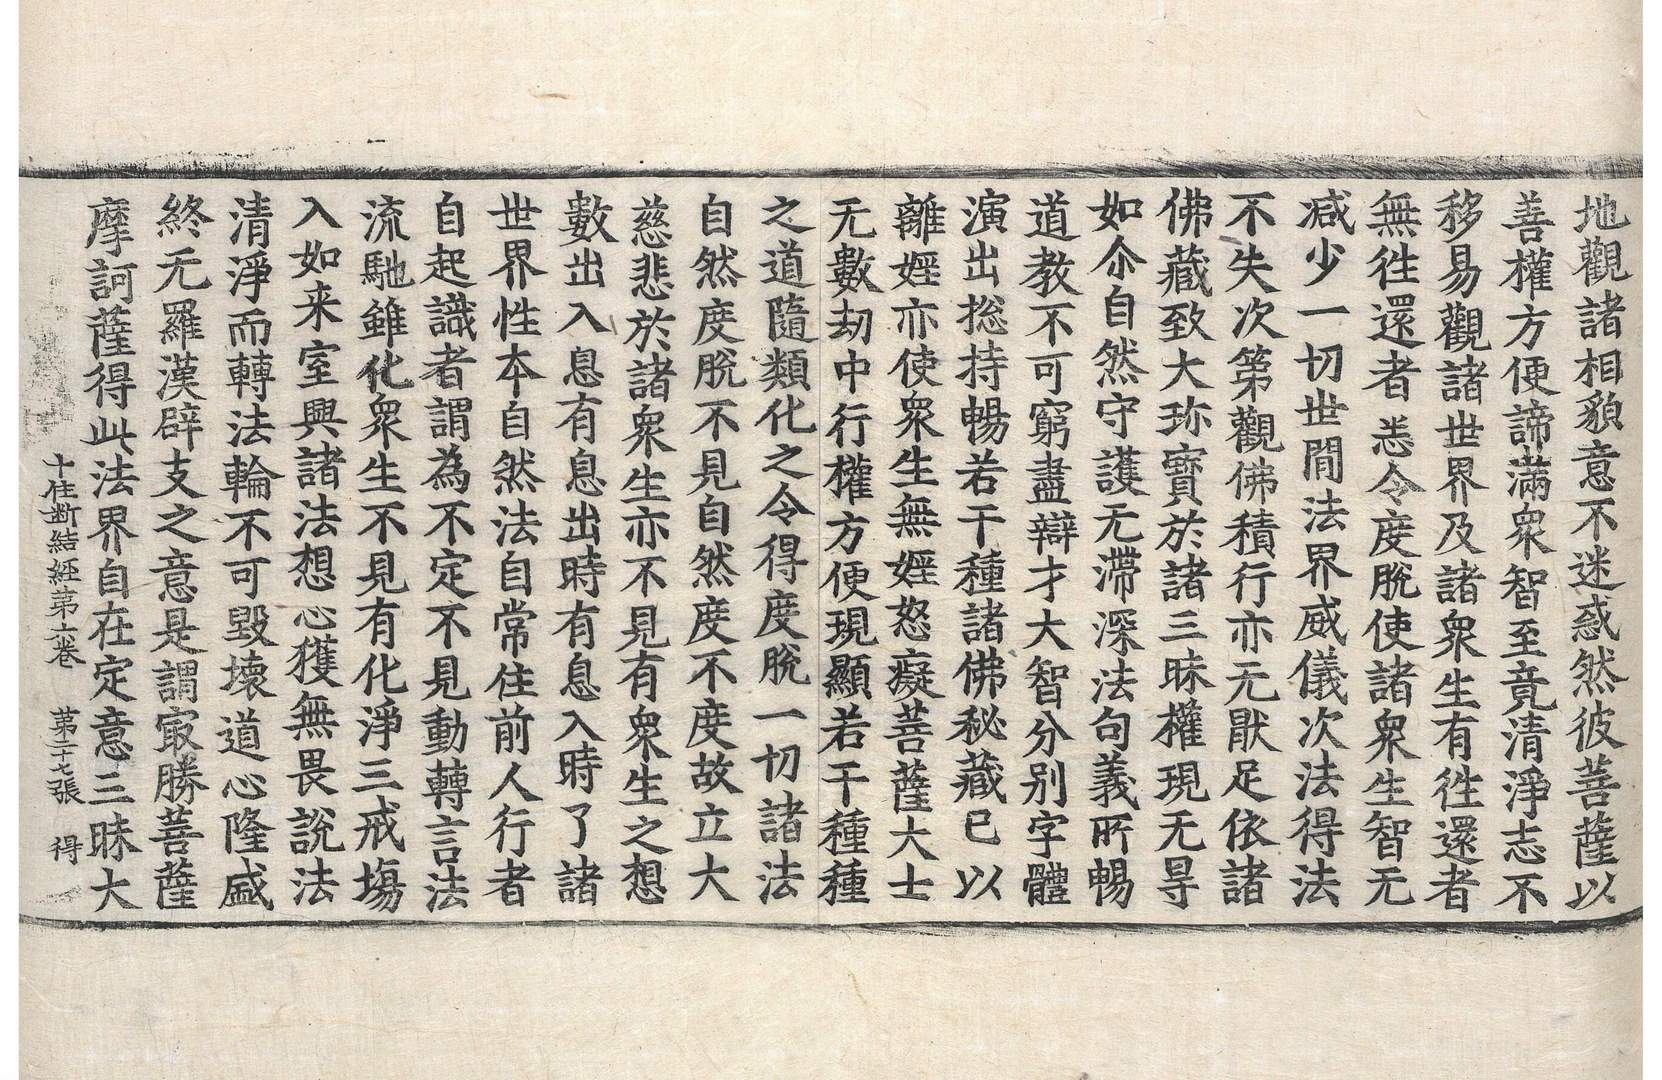 地觀諸相貌意不迷惑然彼菩薩以
善權方便諦滿衆智至竟清淨志不
移易觀諸世界及諸衆生有徃還者
無徃還者悉令度脫使諸衆生智无
减少一切世間法界威儀次法得法
不失次第觀佛積行亦无猒足依諸
佛藏致大珎寳於諸三昧權現无㝵
如尒自然守護无滯深法句義所暢
道教不可窮盡辯才大智分别字體
演出捴持暢若干種諸佛秘藏已以
離婬亦使衆生無婬怒癡菩薩大士
无數劫中行權方便現顯若干種種
之道隨類化之令得度脫一切諸法
自然度脫不見自然度不度故立大
慈悲於諸衆生亦不見有衆生之想
數出入息有息出時有息入時了諸
世界性本自然法自常住前人行者
自起識者謂為不定不見動轉言法
流馳雖化衆生不見有化淨三戒塲
入如来室興諸法想心獲無畏說法
清淨而轉法輪不可毀壞道心隆盛
終无羅漢辟支之意是謂㝡勝菩薩
摩訶薩得此法界自在定意三昧大
十住断結經第十卷 第二十七張 得